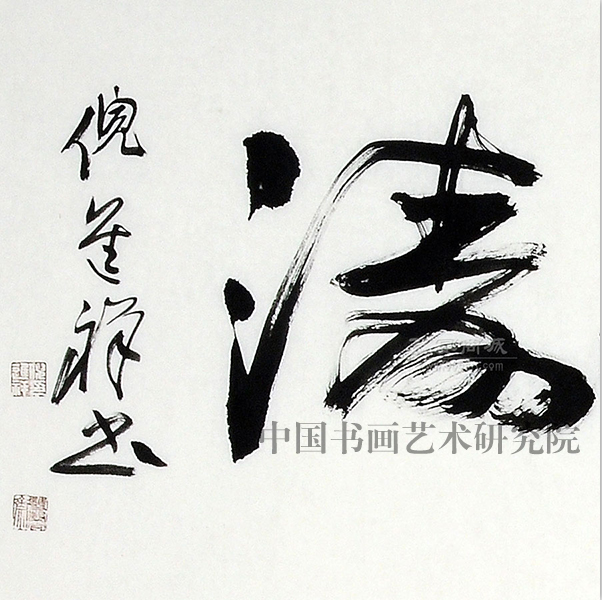 涛
倪進祥书
中国书画艺术研究院